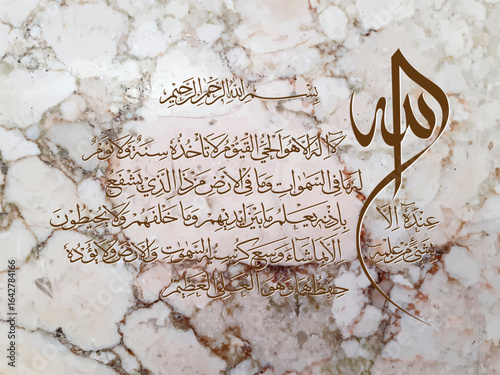 بِسْمِ اللهِ الرَّحْمٰنِ الرَّحِيْمِ
الله
لَا اِلٰهَ اِلَّا هُوَ اَلْحَيُّ الْقَيُّوْمُ لَا تَأْخُذُهٗ سِنَةٌ وَّلَا نَوْمٌ
لَهٗ مَا فِي السَّمٰوَاتِ وَمَا فِي الْاَرْضِ مَنْ ذَا الَّذِيْ يَشْفَعُ
عِنْدَهٗ اِلَّا بِاِذْنِهٖ يَعْلَمُ مَا بَيْنَ اَيْدِيْهِمْ وَمَا خَلْفَهُمْ وَلَا يُحِيْطُوْنَ
بِشَيْءٍ مِّنْ عِلْمِهٖ اِلَّا بِمَا شَاءَ وَسِعَ كُرْسِيُّهُ السَّمٰوٰتِ وَالْاَرْضَ وَلَا يَؤُدُهٗ
حِفْظُهُمَا وَهُوَ الْعَلِيُّ الْعَظِيْمُ
Adobe Stock | #1642784166